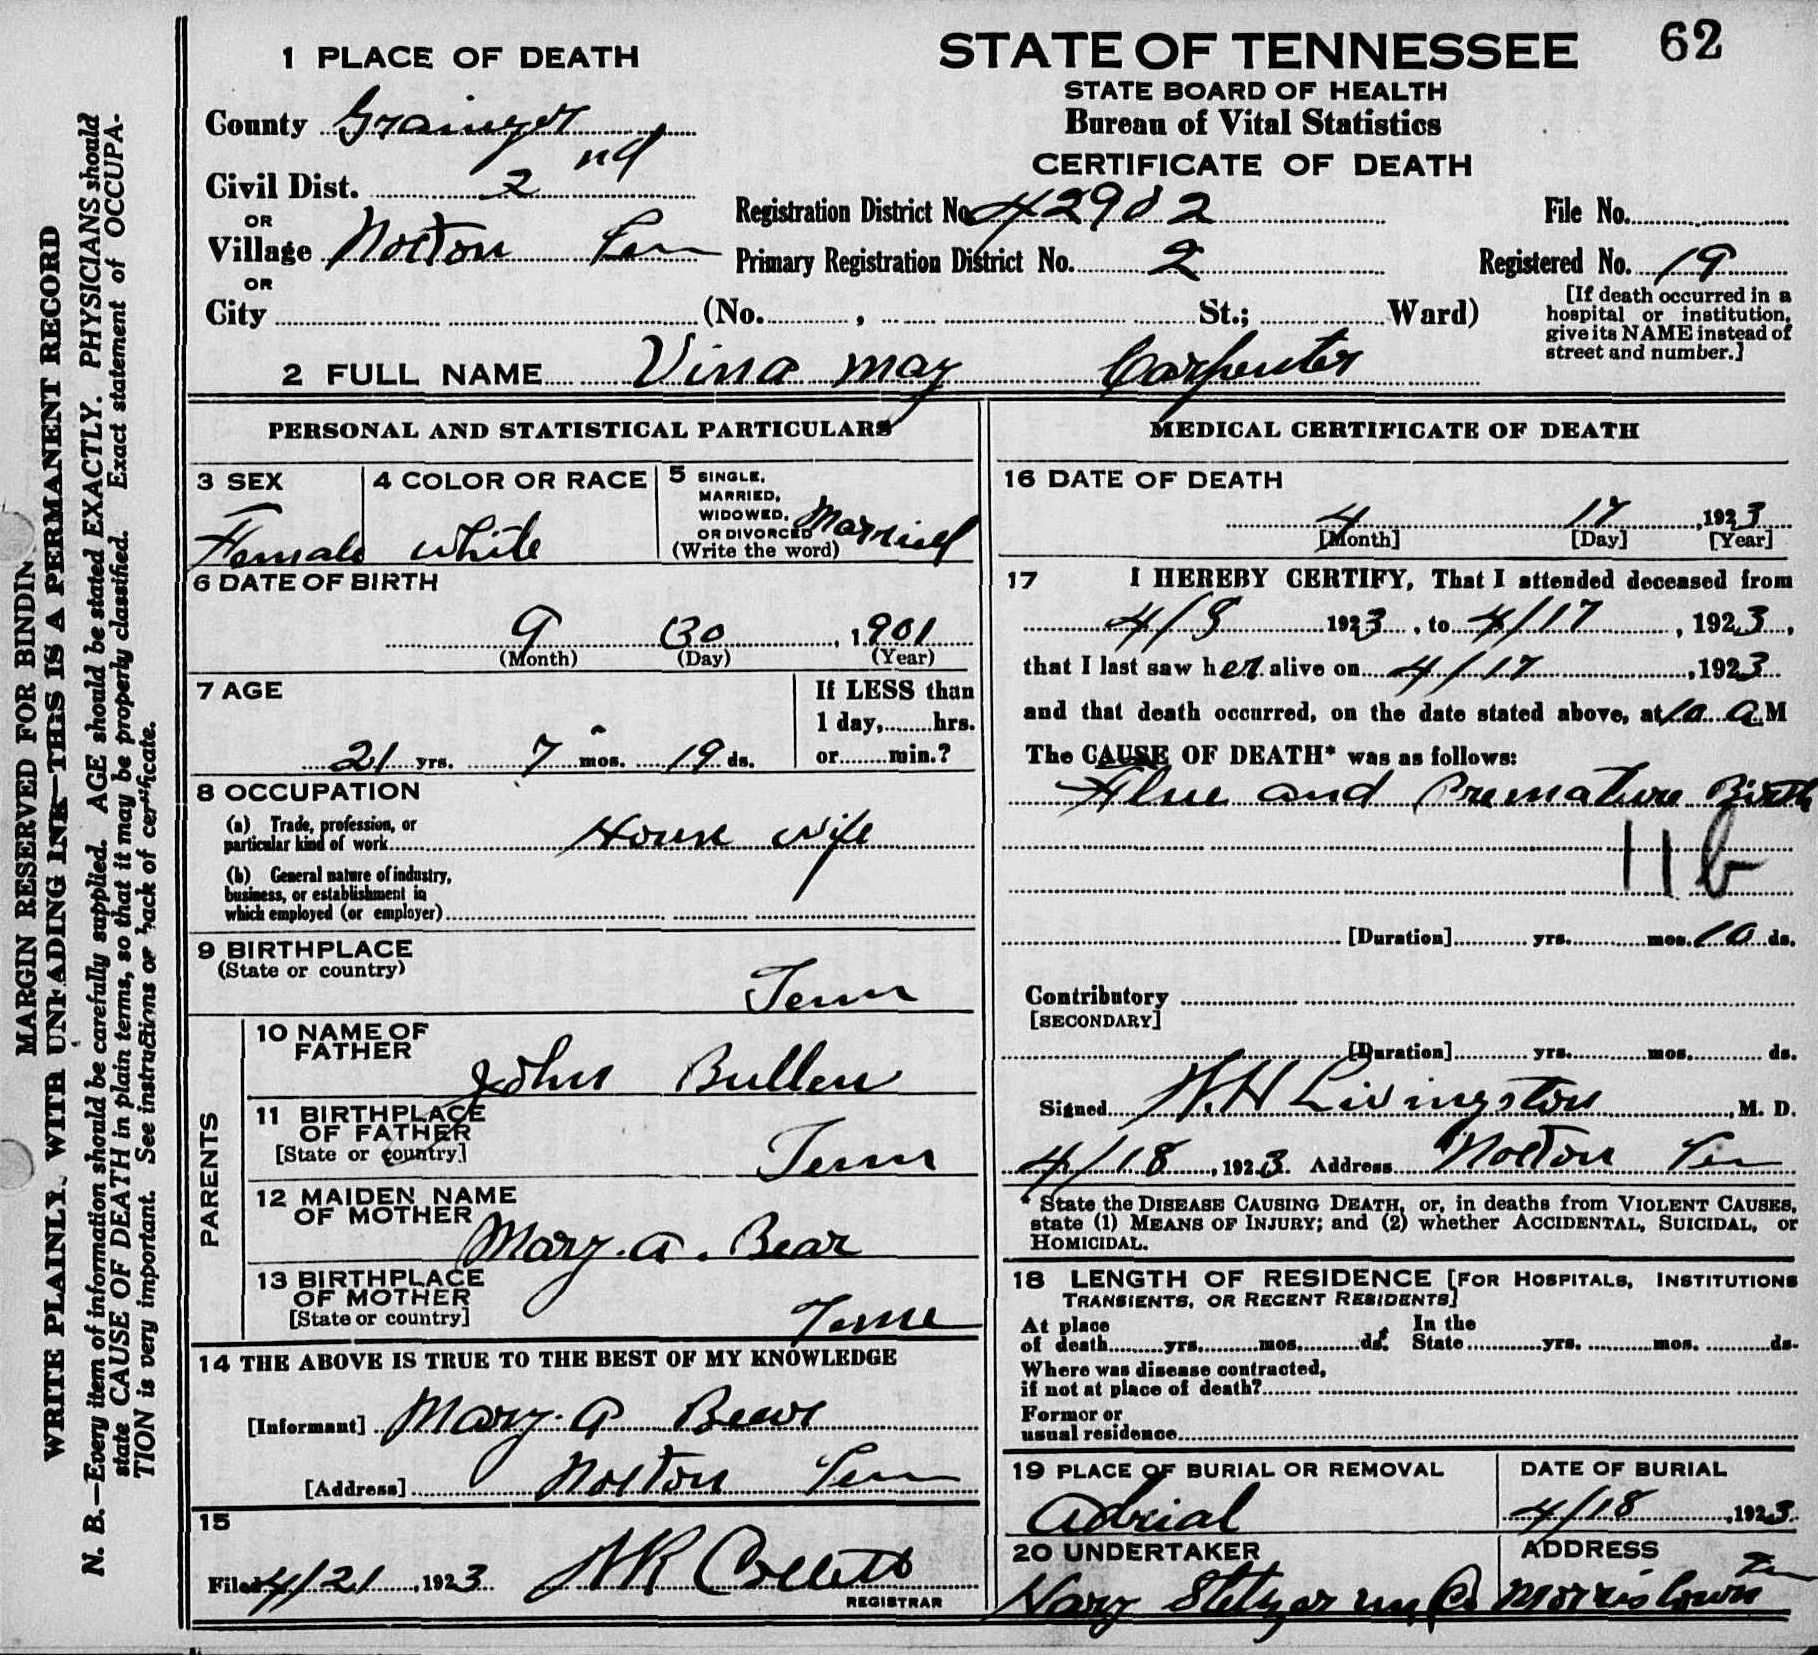 62
STATE OF TENNESSEE
STATE BOARD OF HEALTH
Bureau of Vital Statistics
CERTIFICATE OF DEATH
1 PLACE OF DEATH
County Grainger
Civil Dist. 2nd
OR
Village Norton Ten
OR
City (No. , St.; Ward)
Registration District No. 42902
File No.
Primary Registration District No. 2
Registered No. 19
[If death occurred in a
hospital or institution,
give its NAME instead of
street and number.]
2 FULL NAME Vina may Carpenter
PERSONAL AND STATISTICAL PARTICULARS
3 SEX
Female
4 COLOR OR RACE
white
5 SINGLE,
MARRIED,
WIDOWED,
OR DIVORCED
(Write the word)
Married
6 DATE OF BIRTH
9 30, 1901
(Month) (Day) (Year)
7 AGE
21 yrs. 7 mos. 19 ds.
If LESS than
1 day, hrs.
or min.?
8 OCCUPATION
(a) Trade, profession, or
particular kind of work House wife
(b) General nature of industry,
business, or establishment in
which employed (or employer)
9 BIRTHPLACE
(State or country)
Tenn
PARENTS
10 NAME OF
FATHER
John Bullen
11 BIRTHPLACE
OF FATHER
[State or country]
Tenn
12 MAIDEN NAME
OF MOTHER
Mary. a. Bear
13 BIRTHPLACE
OF MOTHER
[State or country]
Tenne
14 THE ABOVE IS TRUE TO THE BEST OF MY KNOWLEDGE
[Informant] Mary. a
[Address] Norton Ten
15
Filed 4/21, 1923
REGISTRAR
MEDICAL CERTIFICATE OF DEATH
16 DATE OF DEATH
4 17, 1923
[Month] [Day] [Year]
17 I HEREBY CERTIFY, That I attended deceased from
4/8 1923, to 4/17, 1923,
that I last saw her alive on 4/17, 1923
and that death occurred, on the date stated above, at 10 a.M
The CAUSE OF DEATH* was as follows:
Flue and Premature Birth
11b
[Duration] yrs. mos. 10 ds.
Contributory
[SECONDARY]
[Duration] yrs. mos. ds.
Signed W.H Livingston, M. D.
4/18, 1923 Address Norton Ten
* State the DISEASE CAUSING DEATH, or, in deaths from VIOLENT CAUSES,
state (1) MEANS OF INJURY; and (2) whether ACCIDENTAL, SUICIDAL, or
HOMICIDAL.
18 LENGTH OF RESIDENCE [FOR HOSPITALS, INSTITUTIONS
TRANSIENTS, OR RECENT RESIDENTS]
At place
of death yrs. mos. ds.
In the
State yrs. mos. ds.
Where was disease contracted,
if not at place of death?
Former or
usual residence
19 PLACE OF BURIAL OR REMOVAL
Adrial
DATE OF BURIAL
4/18, 1923
20 UNDERTAKER
ADDRESS
Morristown Ten
MARGIN RESERVED FOR BINDIN
WRITE PLAINLY. WITH UNFADING INK—THIS IS A PERMANENT RECORD
N. B.—Every item of information should be carefully supplied. AGE should be stated EXACTLY. PHYSICIANS should
state CAUSE OF DEATH in plain terms, so that it may be properly classified. Exact statement of OCCUPA-
TION is very important. See instructions or back of certificate.